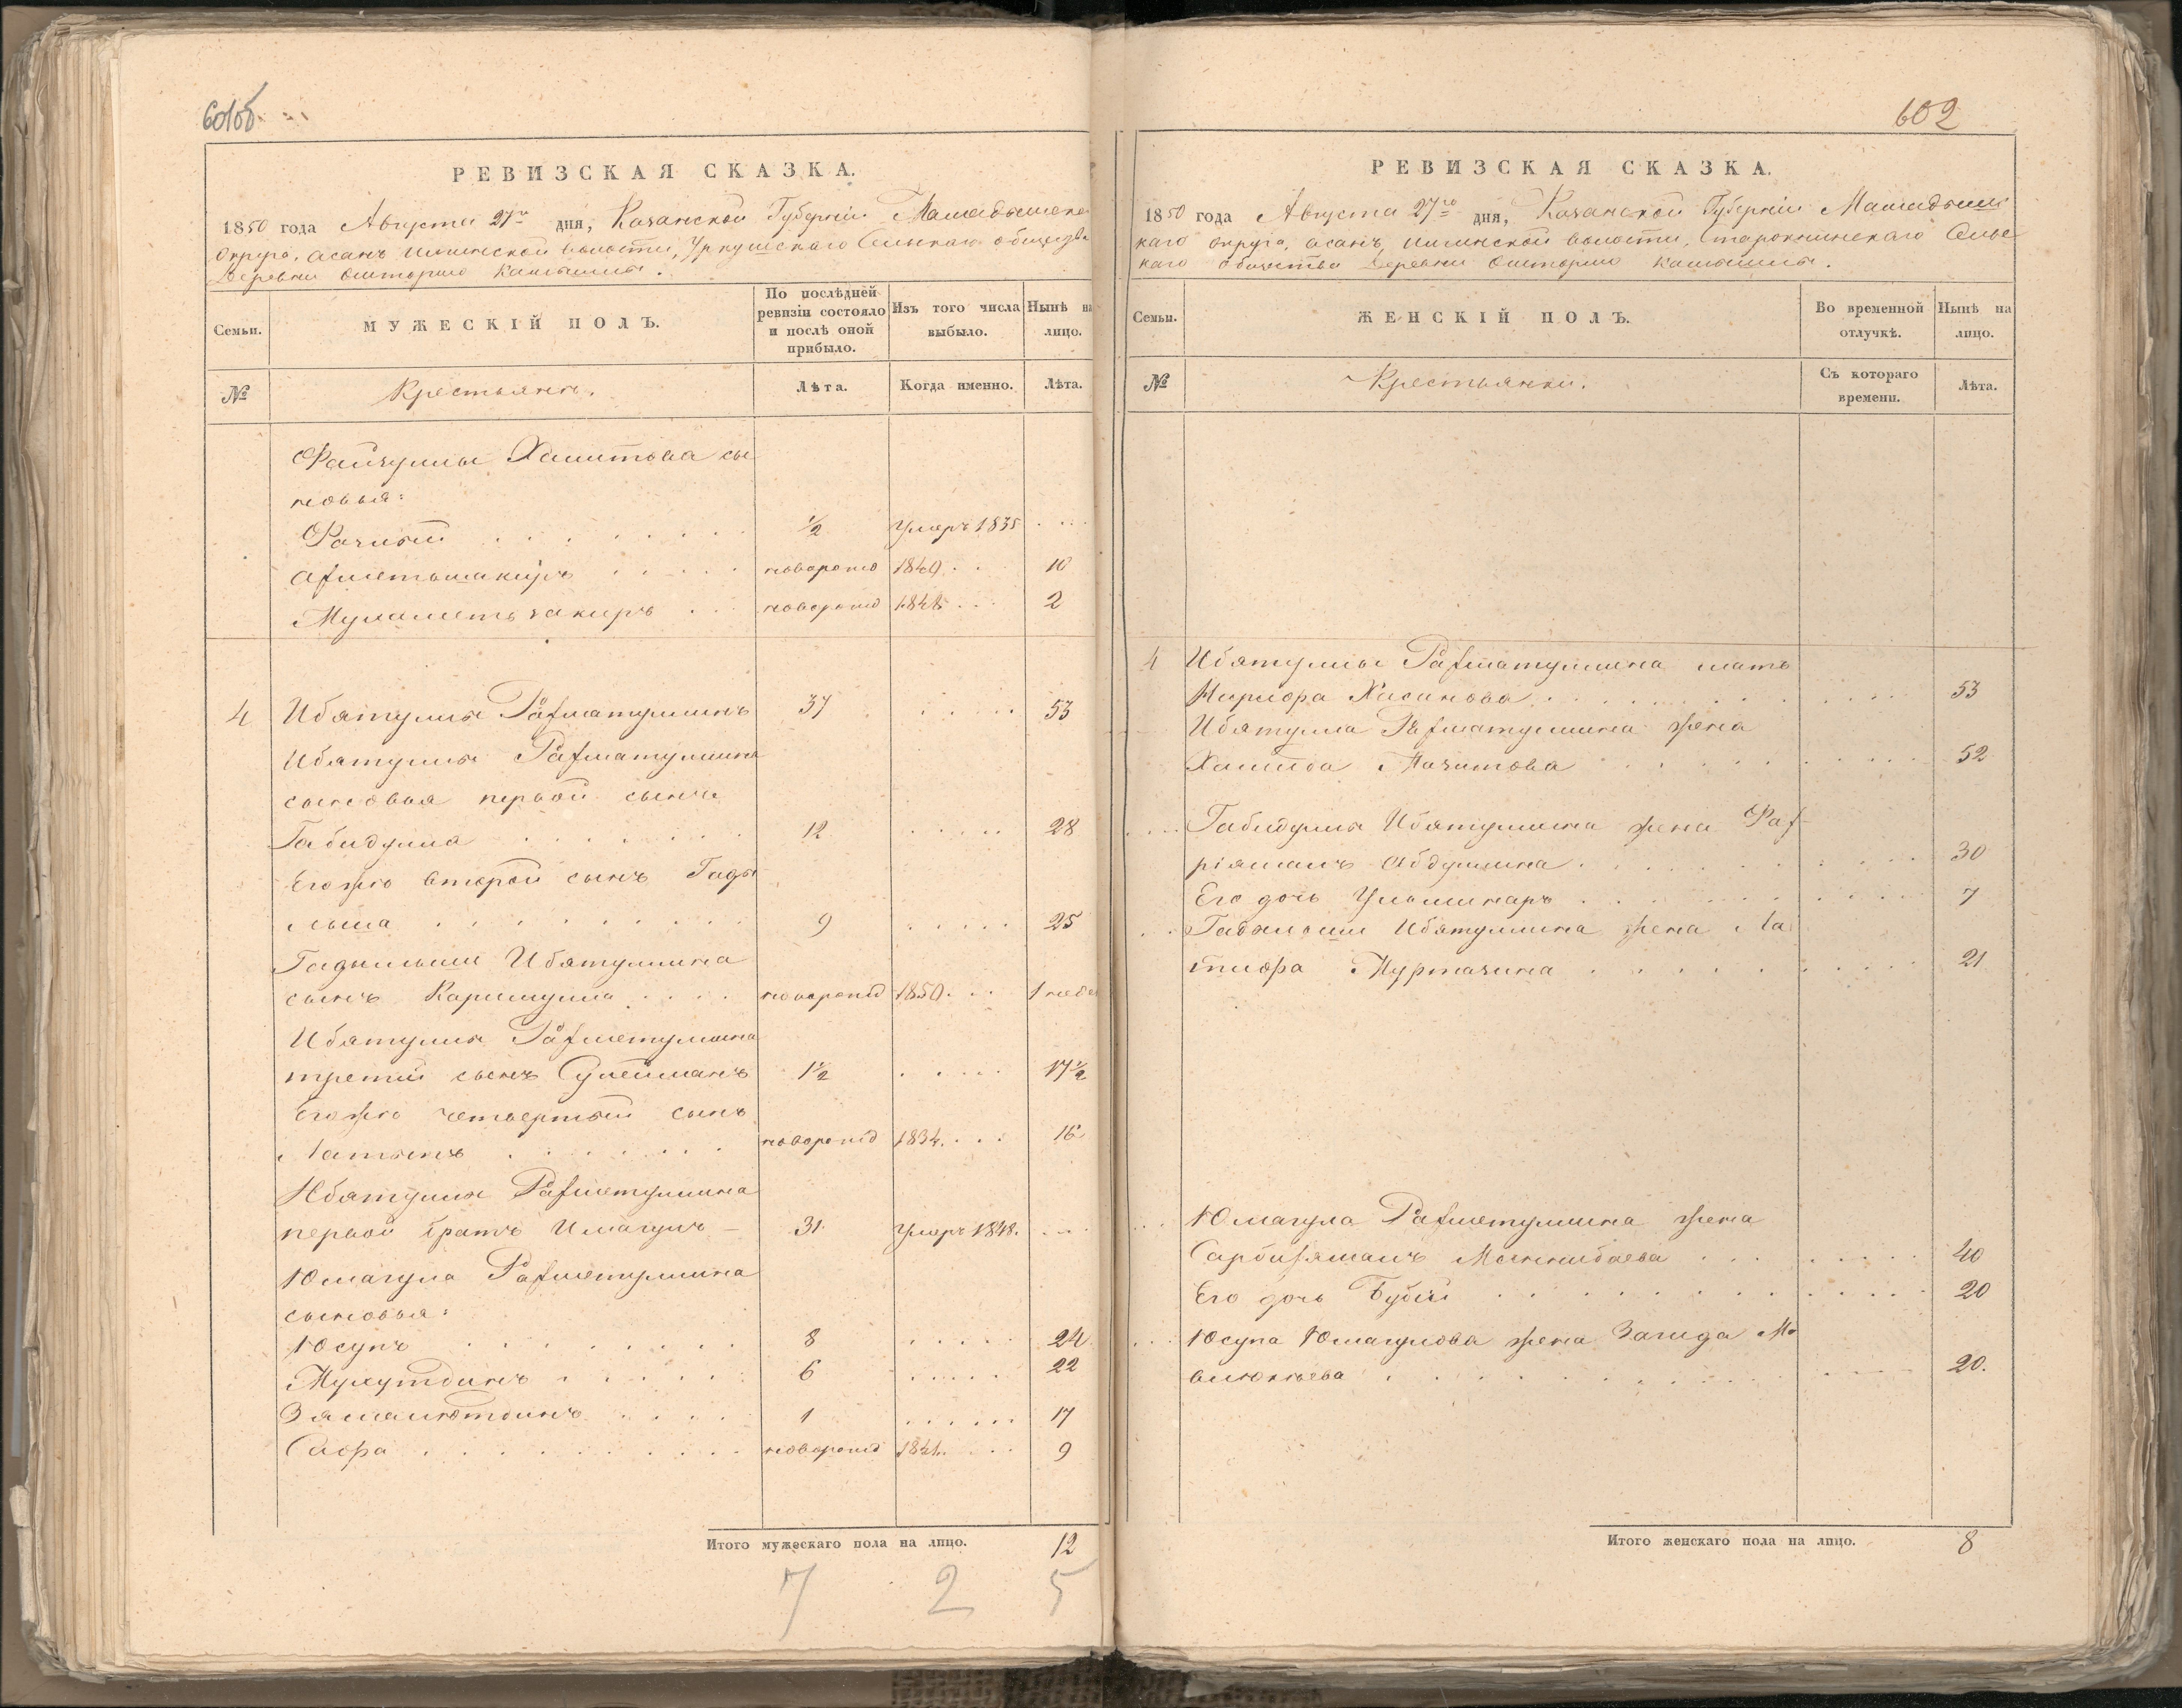 601об.
РЕВИЗСКАЯ СКАЗКА.
1850 года Августа 27го дня, Казанской Губерніи Мамадышска
Округа, Асанъ Илинской волости, Уркушскаго Сельскаго общества
Деревни Ошторма
МУЖЕСКІЙ ПОЛЪ.
Семьи.
По послѣдней ревизіи состояло и послѣ оной прибыло.
Изъ того числа выбыло.
Нынѣ на лицо.
№ Крестьяне. Лѣта. Когда именно. Лѣта.
Файзуллы Хамитова сы
новья:
1/2 Умеръ 1835
Ахметьшакиръ новорожд 1840 10
Мухаметьзакиръ новорожд 1848 2
4 Ибятулла Рахматуллинъ 37 53
Ибятуллы Рахматуллина
сыновья первой сынъ
Габидулла 12 28
Егожъ второй сынъ Гады
льша 9 25
Гадыльши Ибятуллина
сынъ Каримулла новорожд 1850 1 неде
Ибятуллы Рахметуллина
третій сынъ Сулейманъ 1 1/2 17 1/2
Егожъ четвертый сынъ
Латыпъ новорожд 1834 16
Ибятуллы Рахметуллина
первой братъ Юмагулъ 31 Умеръ 1848.
Юмагула Рахметуллина
сыновья:
Юсупъ 8 24
Мухутдинъ 6 22
Зямалютдинъ 1 17
Сафа новорожд 1841 9
Итого мужескаго пола на лицо. 12
7 2 5
602
РЕВИЗСКАЯ СКАЗКА.
1850 года Августа 27го дня, Казанской Губерніи Мамадышс
каго округа, Асанъ Илинской волости, Сельс
каго общества Деревни Ошторма
Семьи.
ЖЕНСКІЙ ПОЛЪ.
Во временной отлучкѣ.
Нынѣ на лицо.
№ Крестьянки. Съ котораго времени. Лѣта.
4 Ибятуллы Рахматуллина мать
Хасанова 53
Ибятулла Рахматуллина жена
Хамида 52
Габидуллы Ибятуллина жена Фах
ріямалъ Абдуллина 30
Его дочь 7
Гадыльши Ибятуллина жена Ла
тифа Муртазина 21
Юмагула Рахметуллина жена
Сарбиямалъ 40
Его дочь Бубій 20
Юсупа Юмагулова жена Загида Мо
влюкѣева 20.
Итого женскаго пола на лицо. 8